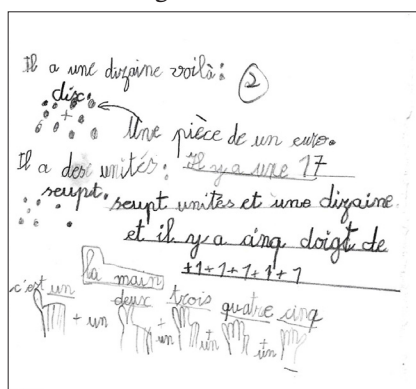 Il a une dizaine voilà : 2
disc.
+
Une pièce de un euro.
Il a des unités : Il y a une 17
seupt. seupt unités et une dizaine
et il y a cinq doigt de
la main +1+1+1+1+1
c'est un deux trois quatre cinq
+ un + un + un + un